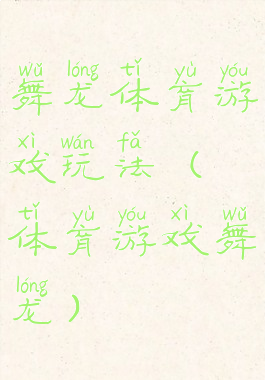 wǔ lóng tǐ yù yóu
舞龙体育游
xì wán fǎ
戏玩法（
tǐ yù yóu xì wǔ
体育游戏舞
lóng
龙）